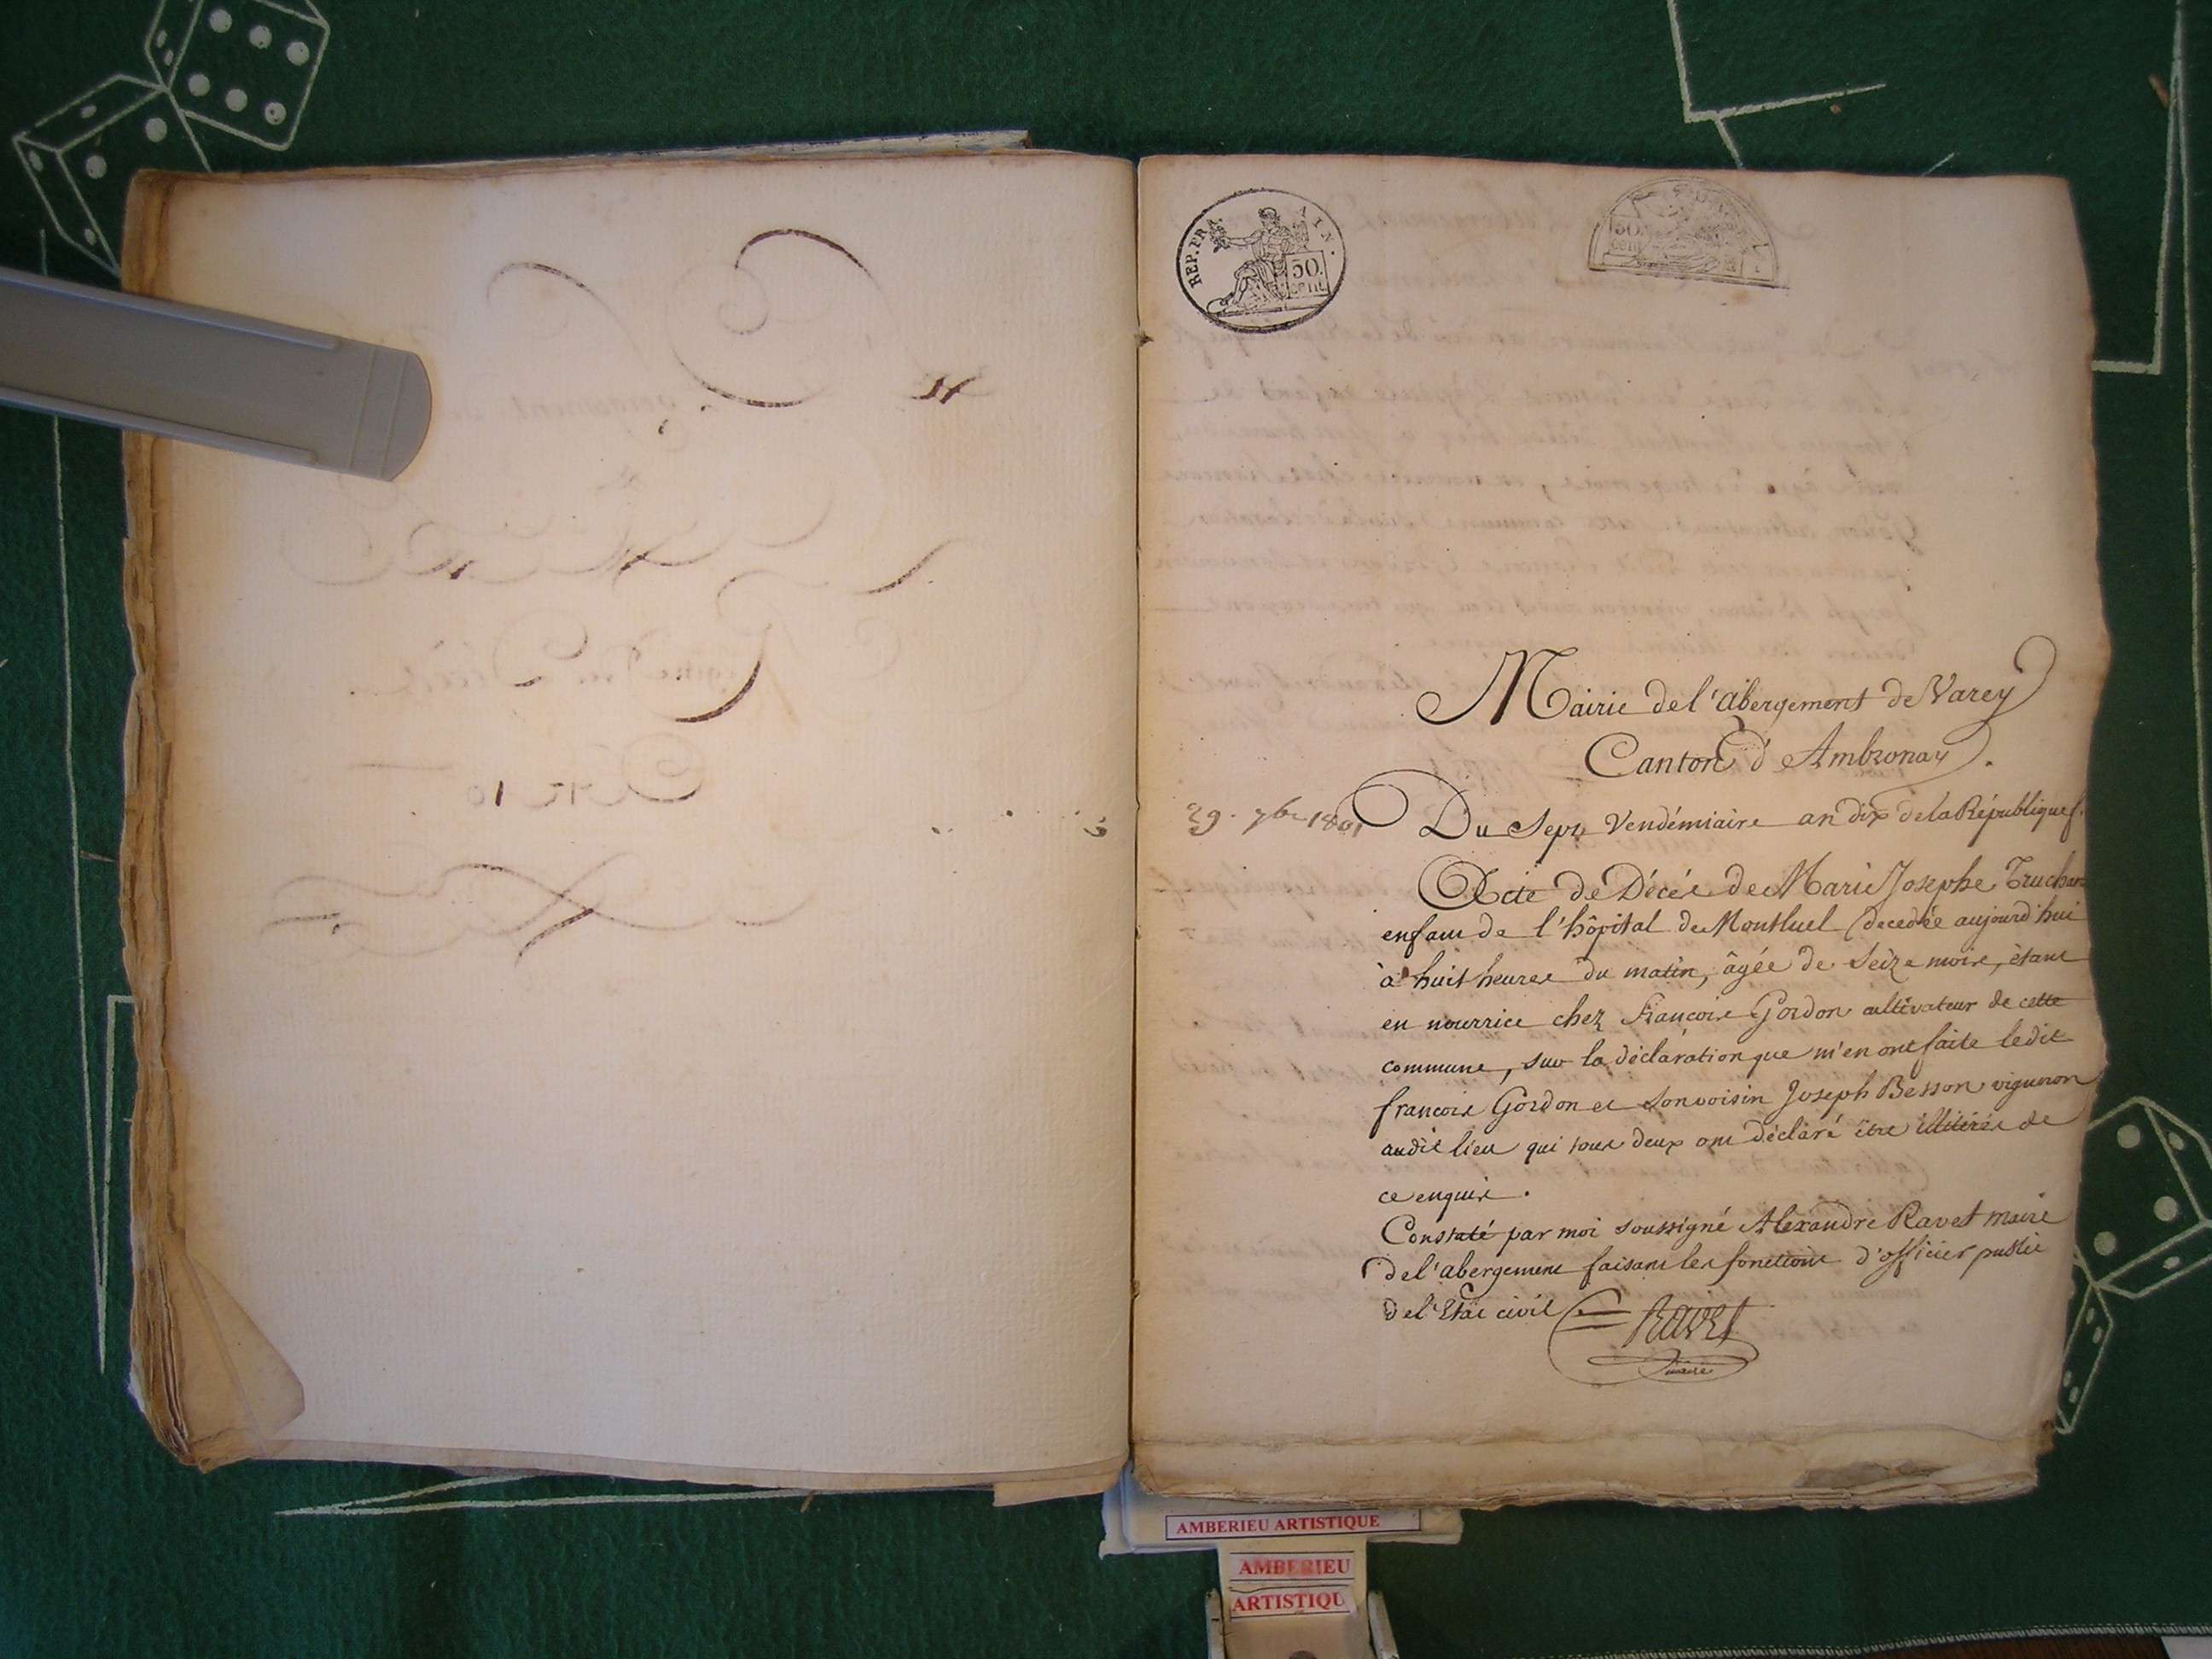 REP. FRA
50.
cent
50.
cent
Mairie de l'abergement de Varey
Canton d'Ambronay.
29. 7bre 1801
Du Sept Vendémiaire an dix de la République f.
Acte de Décès de Marie Josephe Truchar
enfant de l'hôpital de Montluel décédée aujourd'hui
à huit heures du matin, âgée de seize mois, étant
en nourrice chez François Gordon cultivateur de cette
commune, sur la déclaration que m'en ont faite ledit
françois Gordon et son voisin Joseph Besson vigneron
audit lieu qui tous deux ont déclaré être illitérés de
ce enquis.
Constaté par moi soussigné Alexandre Ravet maire
de l'abergement faisant les fonctions d'officier public
de l'Etat civil Ravet
maire
AMBERIEU ARTISTIQUE
AMBERIEU
ARTISTIQU